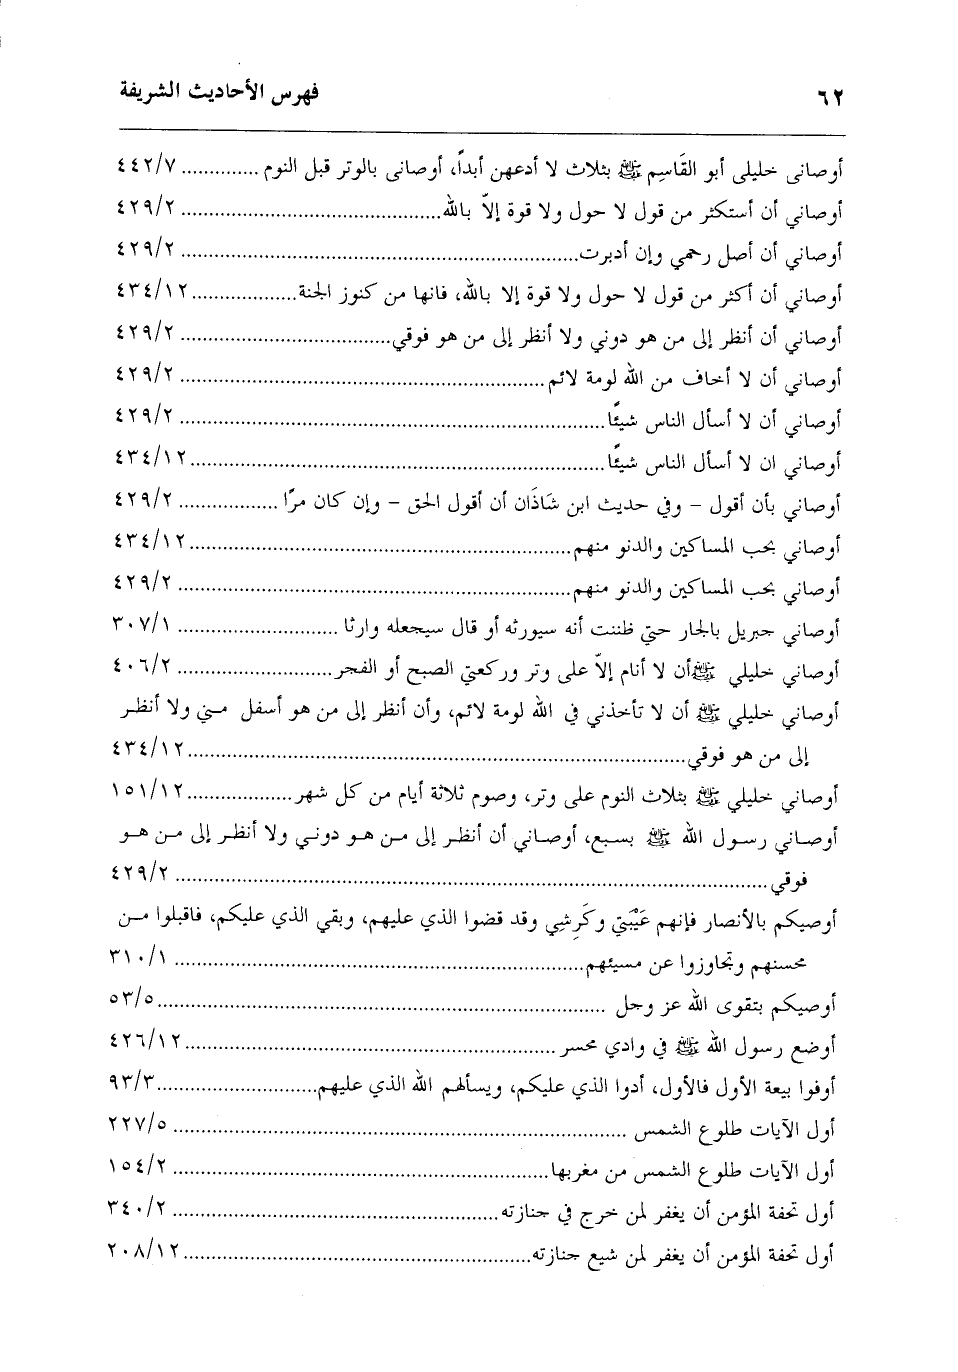 ٦٢ فهرس الأحاديث الشريفة
أوصانى خليلى أبو القَاسِم ﷺ بثلاث لا أدعهن أبداً، أوصانى بالوتر قبل النوم .............. ٤٤٢/٧
أوصاني أن أستكثر من قول لا حول ولا قوة إلاّ بالله............................................... ٤٢٩/٢
أوصاني أن أصل رحمي وإن أدبرت........................................................................ ٤٢٩/٢
أوصاني أن أكثر من قول لا حول ولا قوة إلا بالله، فانها من كنوز الجنة...................٤٣٤/١٢
أوصاني أن أنظر إلى من هو دوني ولا أنظر إلى من هو فوقي...................................... ٤٢٩/٢
أوصاني أن لا أخاف من الله لومة لائم.................................................................. ٤٢٩/٢
أوصاني أن لا أسأل الناس شيئًا............................................................................. ٤٢٩/٢
أوصاني ان لا أسأل الناس شيئًا...........................................................................٤٣٤/١٢
أوصاني بأن أقول – وفي حديث ابن شَاذَان أن أقول الحق – وإن كان مرًا .................. ٤٢٩/٢
أوصاني بحب المساكين والدنو منهم.....................................................................٤٣٤/١٢
أوصاني بحب المساكين والدنو منهم....................................................................... ٤٢٩/٢
أوصاني جبريل بالجار حتى ظننت أنه سيورثه أو قال سيجعله وارثا ............................. ٣٠٧/١
أوصاني خليلي ﷺأن لا أنام إلاّ على وتر وركعتي الصبح أو الفجر............................ ٤٠٦/٢
أوصاني خليلي ﷺ أن لا تأخذني في الله لومة لائم، وأن أنظر إلى من هو أسفل مني ولا أنظر
إلى من هو فوقي...........................................................................................٤٣٤/١٢
أوصاني خليلي ﷺ بثلاث النوم على وتر، وصوم ثلاثة أيام من كل شهر...................١٥١/١٢
أوصاني رسول الله ﷺ بسبع، أوصاني أن أنظر إلى من هو دوني ولا أنظر إلى من هو
فوقي........................................................................................................... ٤٢٩/٢
أوصيكم بالأنصار فإنهم عَيْبَتي وكَرِشِي وقد قضوا الذي عليهم، وبقي الذي عليكم، فاقبلوا من
محسنهم وتجاوزوا عن مسيئهم.......................................................................... ٣١٠/١
أوصيكم بتقوى الله عز وجل .................................................................................٥٣/٥
أوضع رسول الله ﷺ في وادي محسر...................................................................٤٢٦/١٢
أوفوا بيعة الأول فالأول، أدوا الذي عليكم، ويسألهم الله الذي عليهم.............................٩٣/٣
أول الآيات طلوع الشمس .................................................................................. ٢٢٧/٥
أول الآيات طلوع الشمس من مغربها.................................................................... ١٥٤/٢
أول تحفة المؤمن أن يغفر لمن خرج في جنازته........................................................... ٣٤٠/٢
أول تحفة المؤمن أن يغفر لمن شيع جنازته...............................................................٢٠٨/١٢